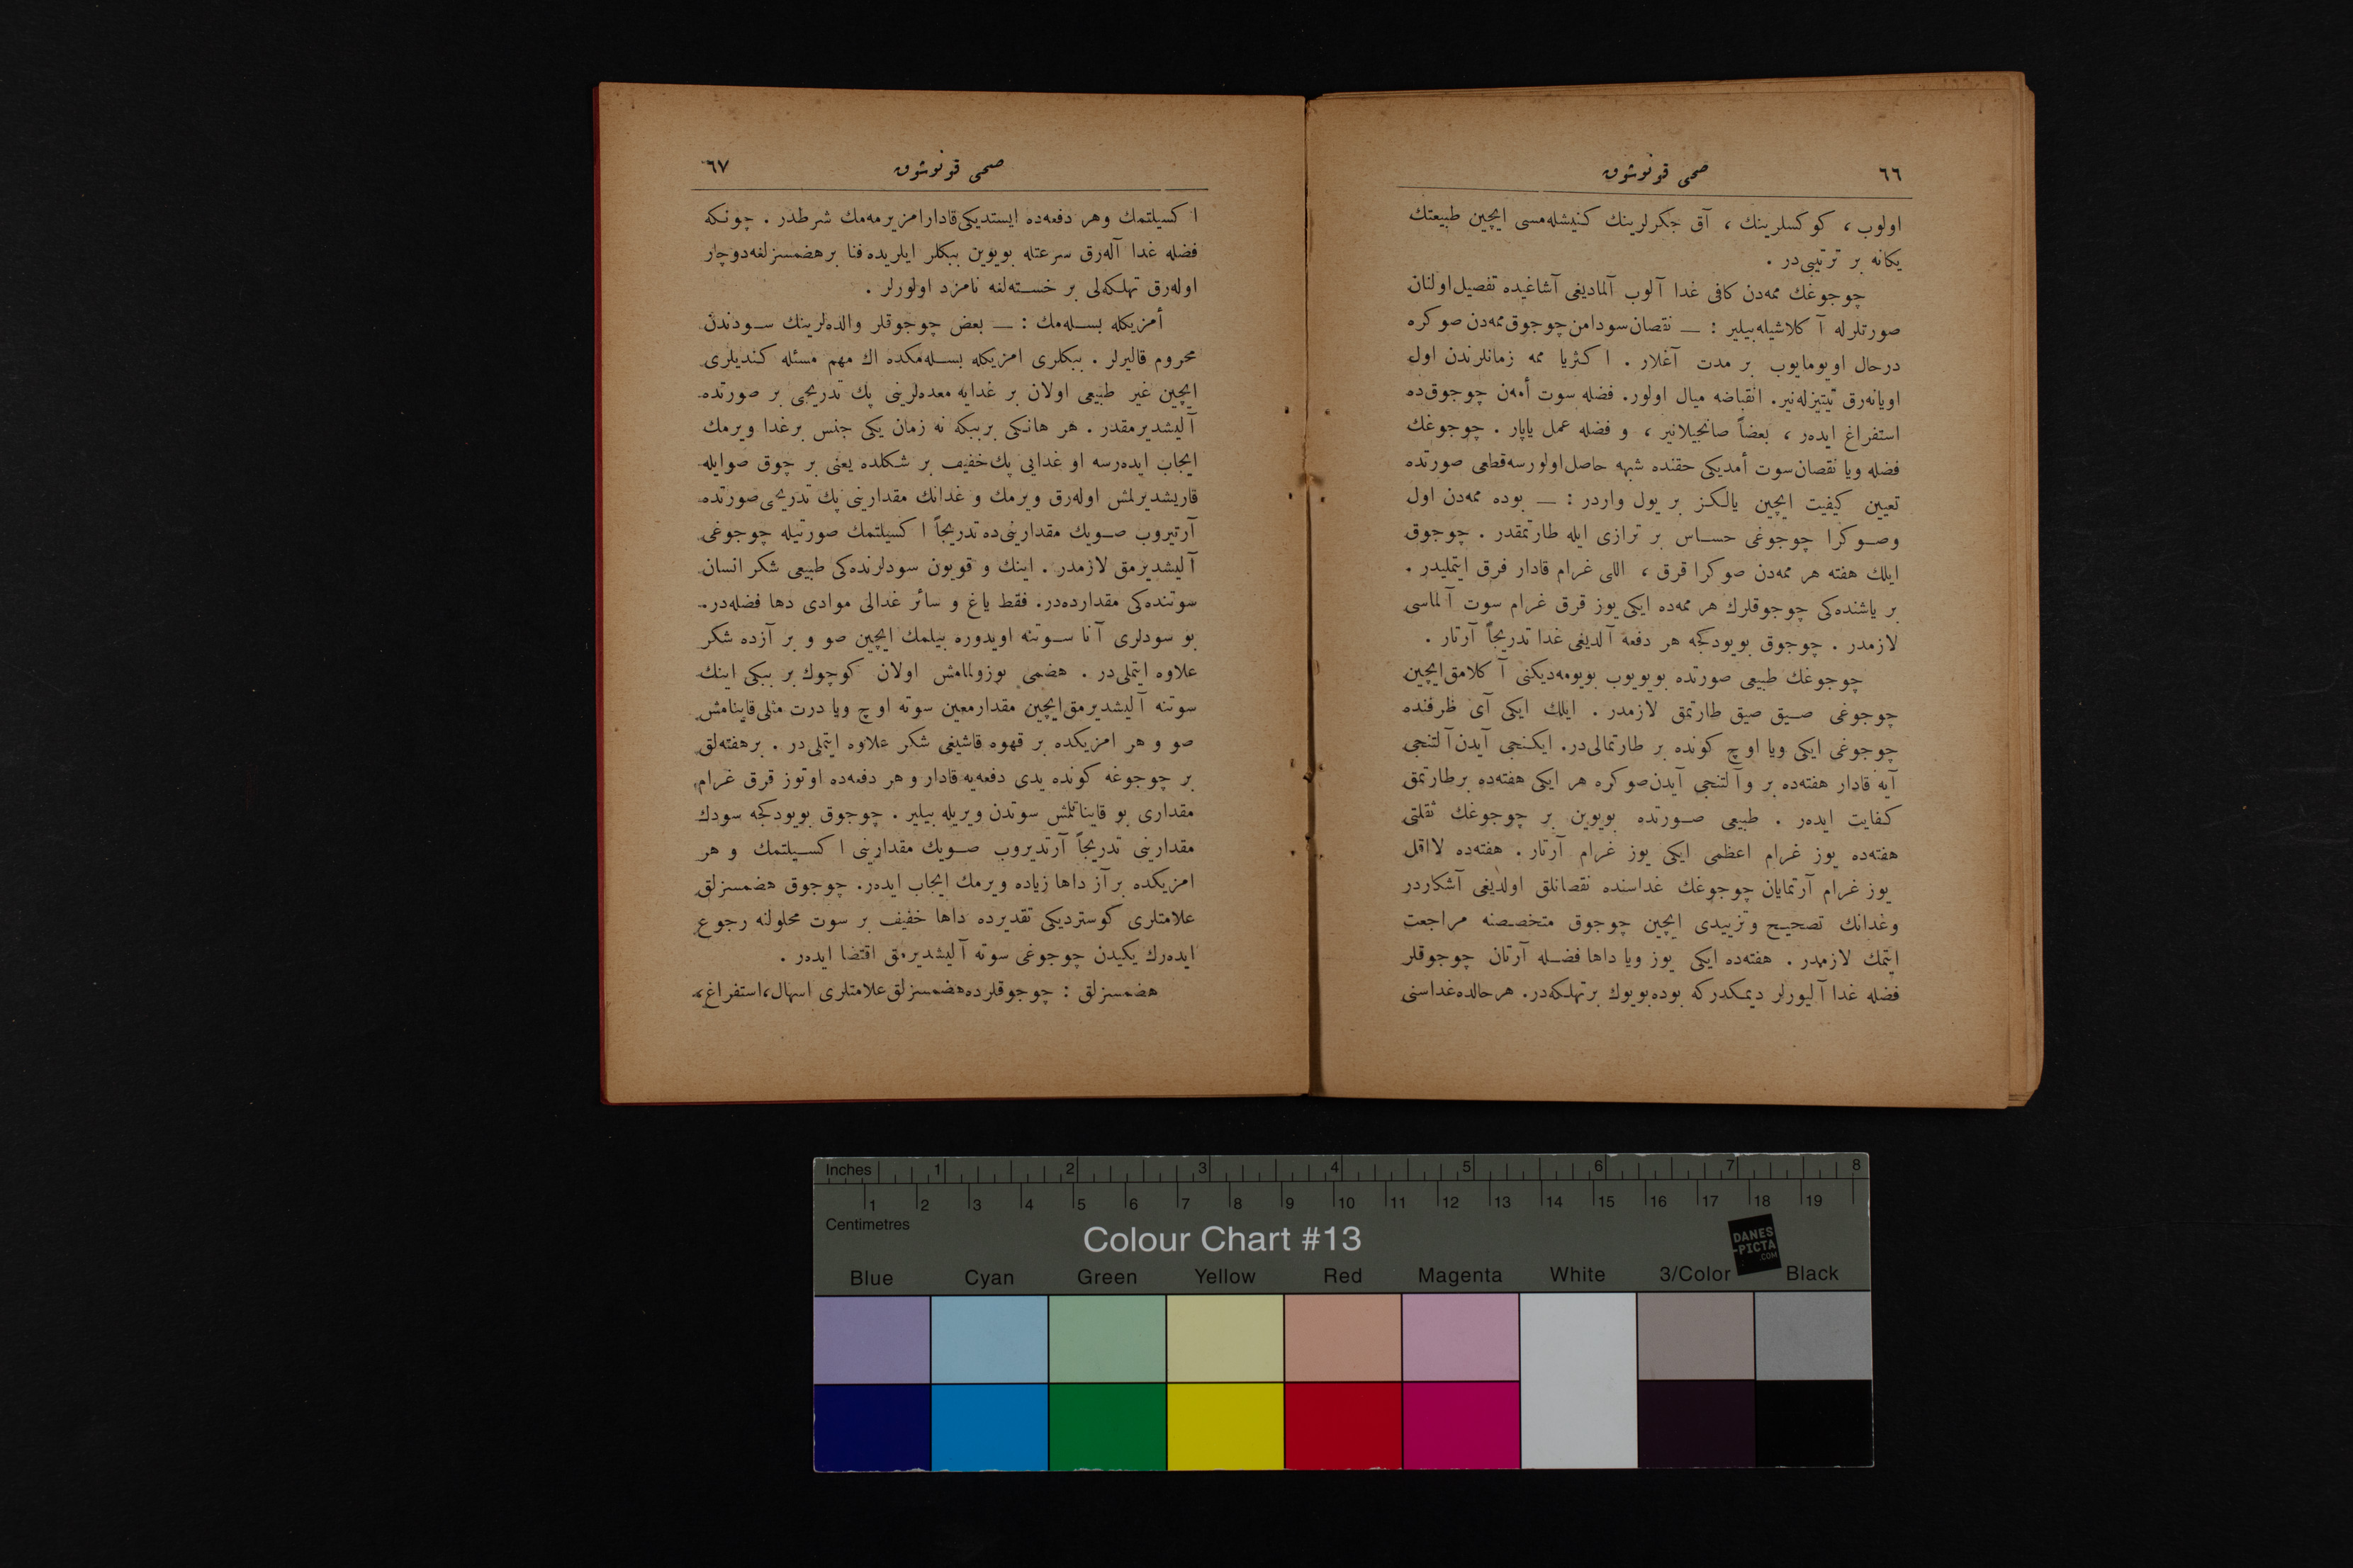 ٦٦
صحی قونوشوق
اولوب ، كوكسلرينك ، آق جكرلرينك كنيشله‌مسی ايچين طبيعتك
يكانه بر ترتيبی‌در .
چوجوغك ممه‌دن كافی غدا آلوب آلماديغی آشاغيده تفصيل اولنان
صورتلرله آ كلاشيله‌بيلير : — نقصان سودامن چوجوق ممه‌دن صوكره
درحال اويومايوب بر مدت آغلار . اكثريا ممه زمانلرندن اول
اويانه‌رق تيتيزله‌نير . انقباضه ميال اولور . فضله سوت أمه‌ن چوجوق‌ده
استفراغ ايده‌ر ، بعضاً صانجيلانير ، و فضله عمل ياپار . چوجوغك
فضله ويا نقصان سوت أمديكی حقنده شبهه حاصل اولورسه قطعی صورتده
تعيين كيفيت ايچين يالكز بر يول واردر : — بوده ممه‌دن اول
وصوكرا چوجوغی حساس بر ترازی ايله طارتمقدر . چوجوق
ايلك هفته هر ممه‌دن صوكرا قرق ، اللی غرام قادار فرق ايتمليدر .
بر ياشنده‌كی چوجوقلرك هر ممه‌ده ايكی يوز قرق غرام سوت آلماسی
لازمدر . چوجوق بويودكجه هر دفعه آلديغی غدا تدريجاً آرتار .
چوجوغك طبيعی صورتده بويويوب بويومه‌ديكنی آ كلامق ايچين
چوجوغی صيق صيق طارتمق لازمدر . ايلك ايكی آی ظرفنده
چوجوغی ايكی ويا اوچ كونده بر طارتمالی‌در . ايكنجی آيدن آلتنجی
آيه قادار هفته‌ده بر و آلتنجی آيدن صوكره هر ايكی هفته‌ده بر طارتمق
كفايت ايده‌ر . طبيعی صورتده بويوين بر چوجوغك ثقلتی
هفته‌ده يوز غرام اعظمی ايكی يوز غرام آرتار . هفته‌ده لااقل
يوز غرام آرتمايان چوجوغك غداسنده نقصانلق اولديغی آشكاردر
وغدانك تصحيح وتزييدی ايچين چوجوق متخصصنه مراجعت
ايتمك لازمدر . هفته‌ده ايكی يوز ويا داها فضله آرتان چوجوقلر
فضله غدا آليورلر ديمكدركه بوده بويوك بر تهلكه‌در . هر حالده غداسنی
صحی قونوشوق
٦٧
ا كسيلتمك وهر دفعه‌ده ايستديكی قادار امزيرمه‌مك شرطدر . چونكه
فضله غدا آله‌رق سرعتله بويوين ببكلر ايلريده فنا بر هضمسزلغه دوچار
اوله‌رق تهلكه‌لی بر خسته‌لغه نامزد اولورلر .
أمزيكله بسله‌مك : — بعض چوجوقلر والده‌لرينك سودندن
محروم قاليرلر . ببكلری امزيكله بسله‌مكده اك مهم مسئله كنديلری
ايچين غير طبيعی اولان بر غدايه معده‌لرينی پك تدريجی بر صورتده
آليشديرمقدر . هر هانكی بر ببكه نه زمان يكی جنس بر غدا ويرمك
ايجاب ايده‌رسه او غدايی پك خفيف بر شكلده يعنی بر چوق صو ايله
قاريشديرلمش اوله‌رق ويرمك و غدانك مقدارينی پك تدريجی صورتده
آرتيروب صويك مقدارينی‌ده تدريجاً ا كسيلتمك صورتيله چوجوغی
آليشديرمق لازمدر . اينك و قويون سودلرنده‌كی طبيعی شكر انسان
سوتنده‌كی مقدارده‌در . فقط ياغ و سائر غدالی موادی دها فضله‌در .
بو سودلری آنا سوتنه اويدوره بيلمك ايچين صو و بر آزده شكر
علاوه ايتملی‌در . هضمی بوزولمامش اولان كوچوك بر ببكی اينك
سوتنه آليشديرمق ايچين مقدار معين سوته اوچ ويا درت مثلی قاينامش
صو و هر امزيكده بر قهوه قاشيغی شكر علاوه ايتملی‌در . بر هفته‌لق
بر چوجوغه كونده يدی دفعه‌يه قادار و هر دفعه‌ده اوتوز قرق غرام
مقداری بو قايناتلمش سوتدن ويريله بيلير . چوجوق بويودكجه سودك
مقدارينی تدريجاً آرتديروب صويك مقدارينی ا كسيلتمك و هر
امزيكده بر آز داها زياده ويرمك ايجاب ايده‌ر . چوجوق هضمسزلق
علامتلری كوستردیكی تقديرده داها خفيف بر سوت محلولنه رجوع
ايده‌رك يكيدن چوجوغی سوته آليشديرمق اقتضا ايده‌ر .
هضمسزلق : چوجوقلرده هضمسزلق علامتلری اسهال ، استفراغ ،
Inches 1 2 3 4 5 6 7 8
1 2 3 4 5 6 7 8 9 10 11 12 13 14 15 16 17 18 19
Centimetres
Colour Chart #13
DANES
-PICTA
.COM
Blue Cyan Green Yellow Red Magenta White 3/Color Black